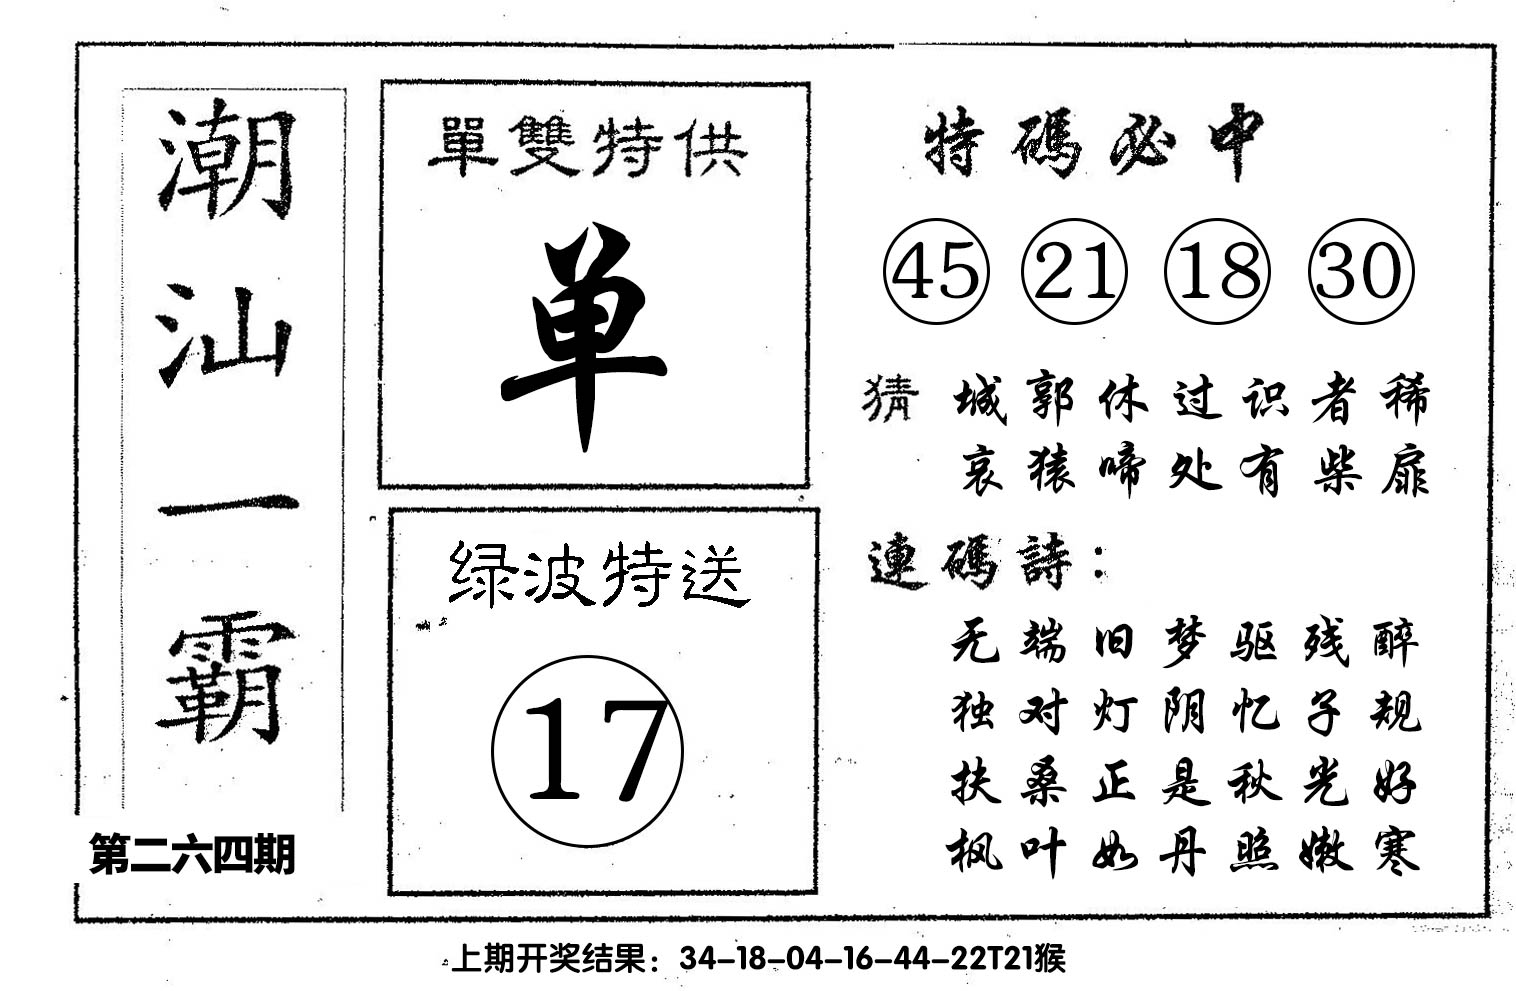 潮汕一霸
第二六四期
單雙特供
单
绿波特送
17
特碼必中
45 21 18 30
猜 城郭休过识者稀
哀猿啼处有柴扉
連碼詩：
无端旧梦驱残醉
独对灯阴忆子规
扶桑正是秋光好
枫叶如丹照嫩寒
上期开奖结果：34-18-04-16-44-22T21猴